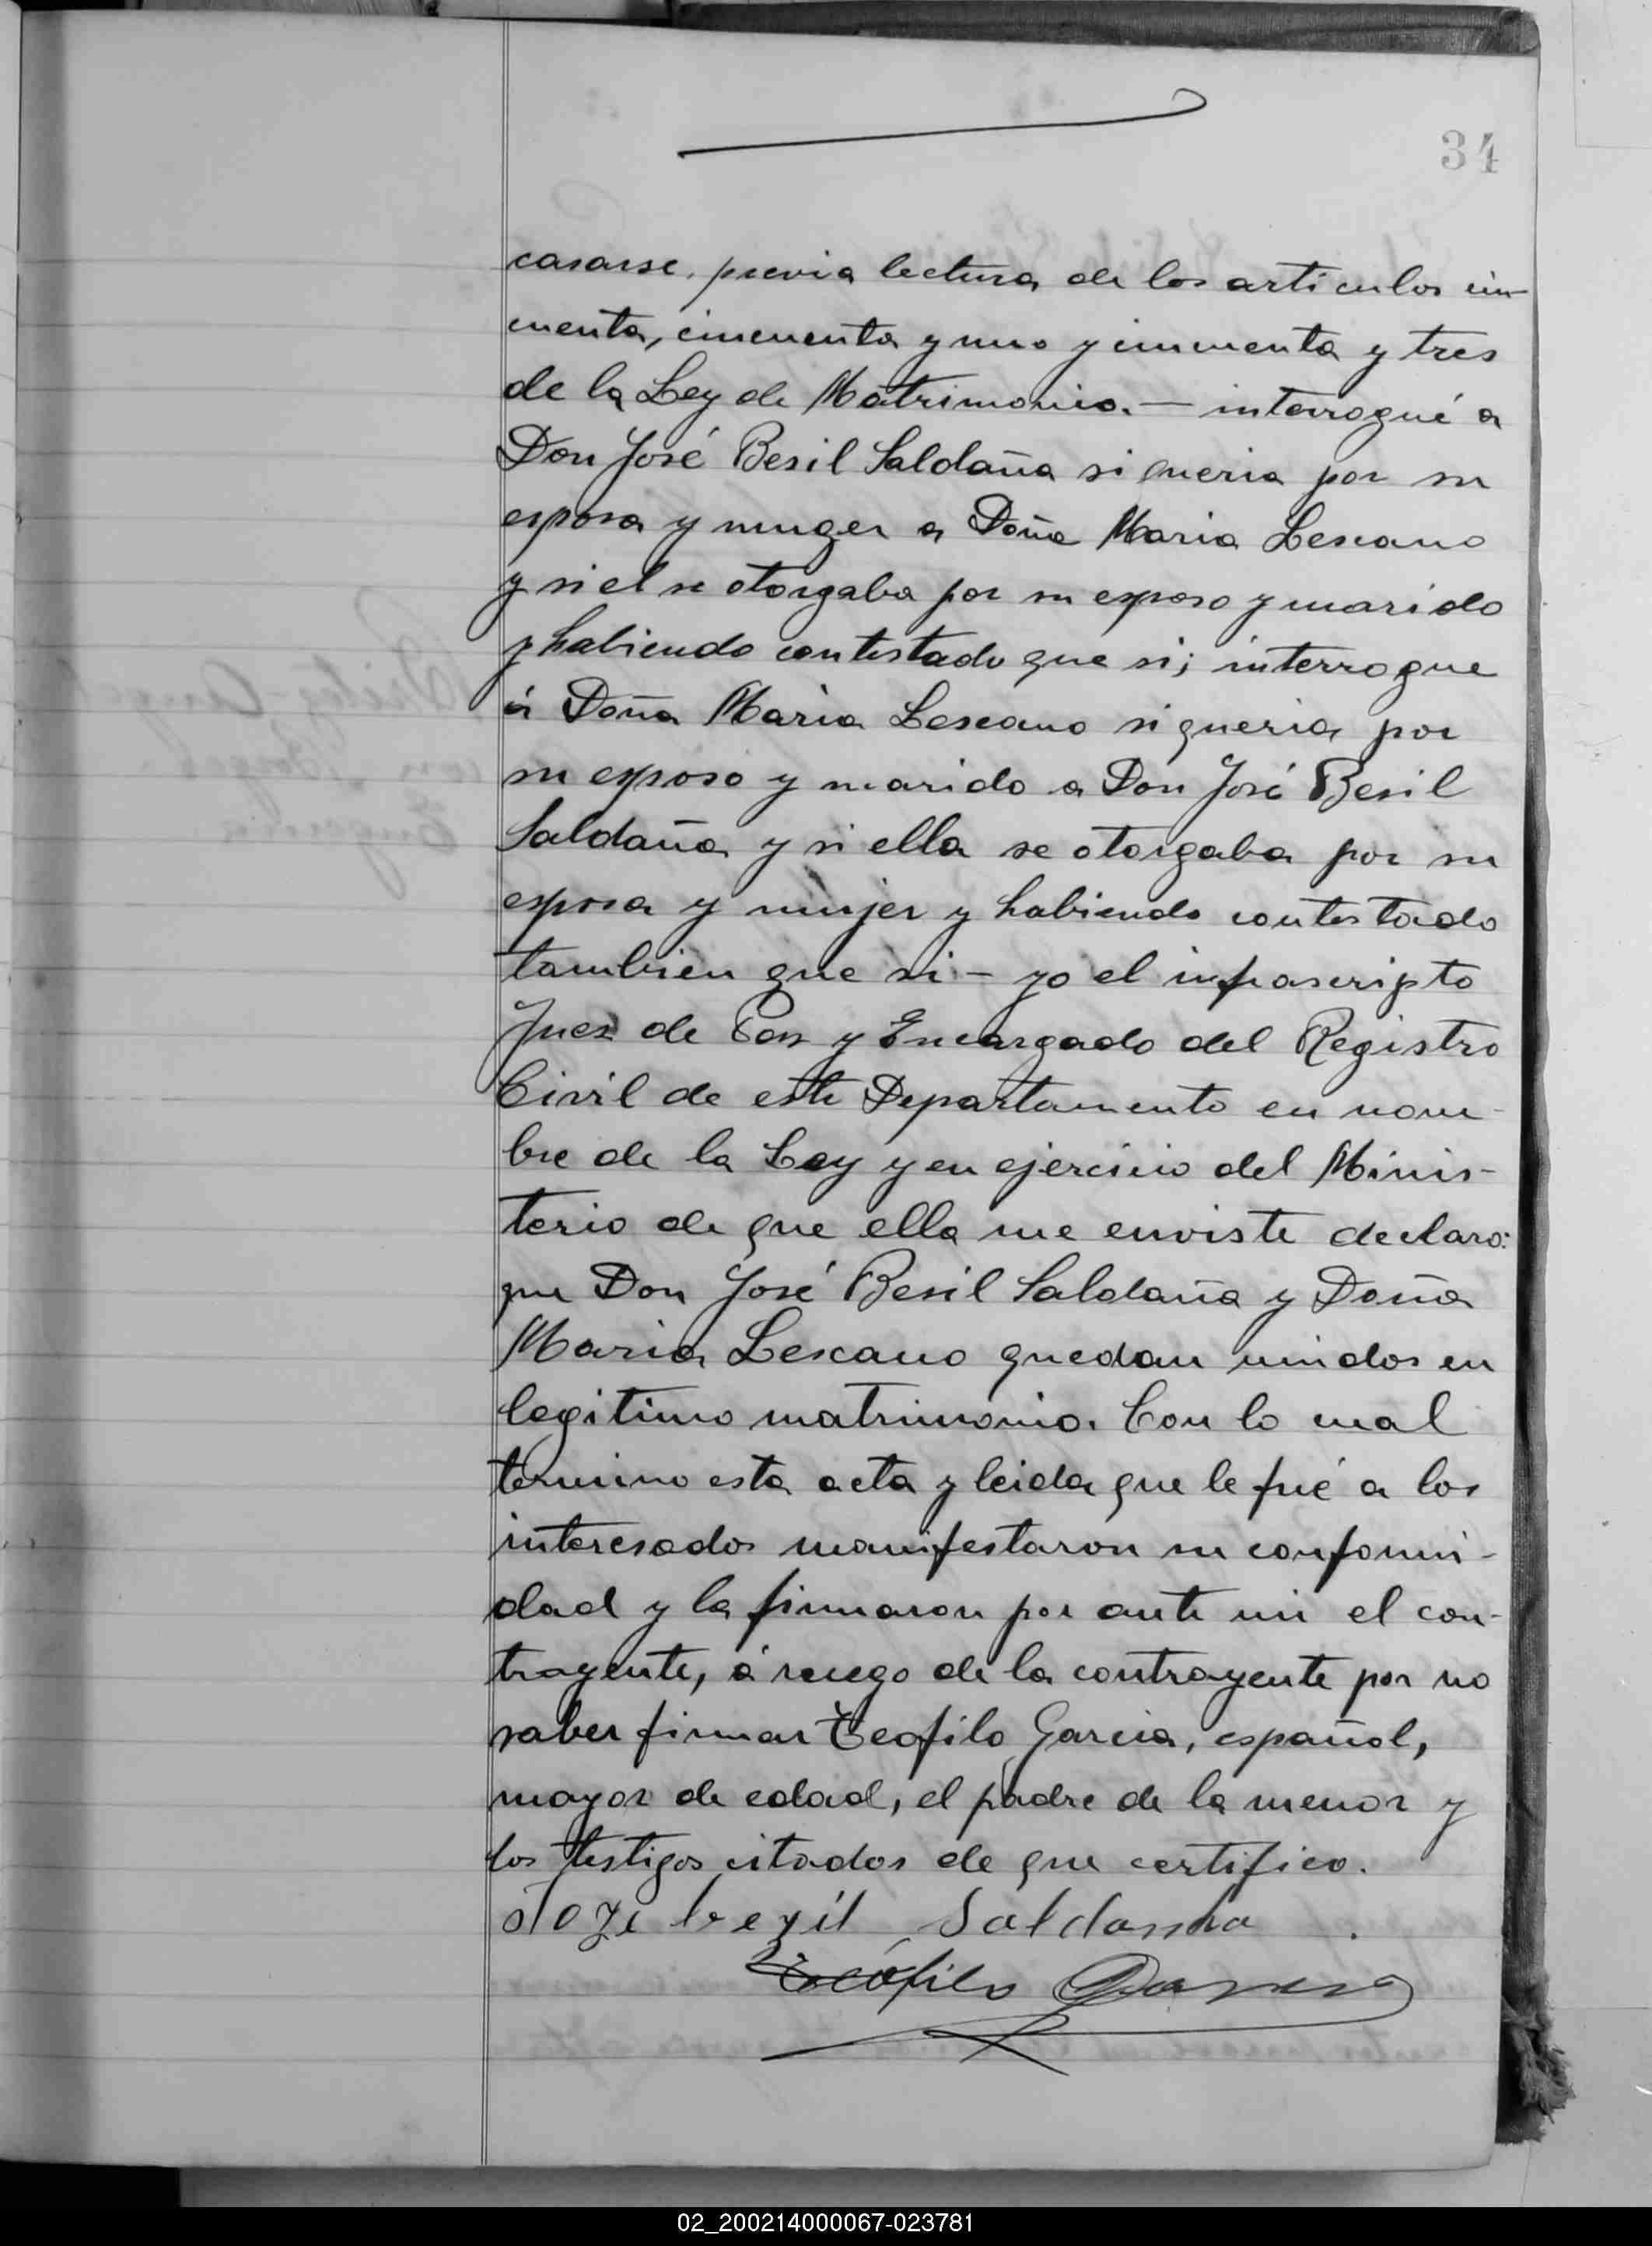 34
casarse, previa lectura de los articulos cin-
cuenta, cincuenta y uno y cincuenta y tres
de la Ley de Matrimonio. — interrogué a
Don José Besil Saldaña si queria por su
esposa y muger a Doña Maria Lescano
y si el se otorgaba por su esposo y marido
y habiendo contestado que si; interrogue
á Doña Maria Lescano si queria por
su esposo y marido a Don José Besil
Saldaña y si ella se otorgaba por su
esposa y mujer y habiendo contestado
tambien que si — yo el infrascripto
Juez de Paz y Encargado del Registro
Civil de este Departamento en nom-
bre de la Ley y en ejercicio del Minis-
terio de que ella me enviste declaro:
que Don José Besil Saldaña y Doña
Maria Lescano quedan unidos en
legitimo matrimonio. Con lo cual
termino esta acta y leida que le fué a los
interesados manifestaron su conformi-
dad y la firmaron por ante mi el con-
trayente, á ruego de la contrayente por no
saber firmar Teofilo Garcia, español,
mayor de edad, el padre de la menor y
los testigos citados de que certifico.
Joze bezil Saldanha
Teófilo Garcia
02_200214000067-023781